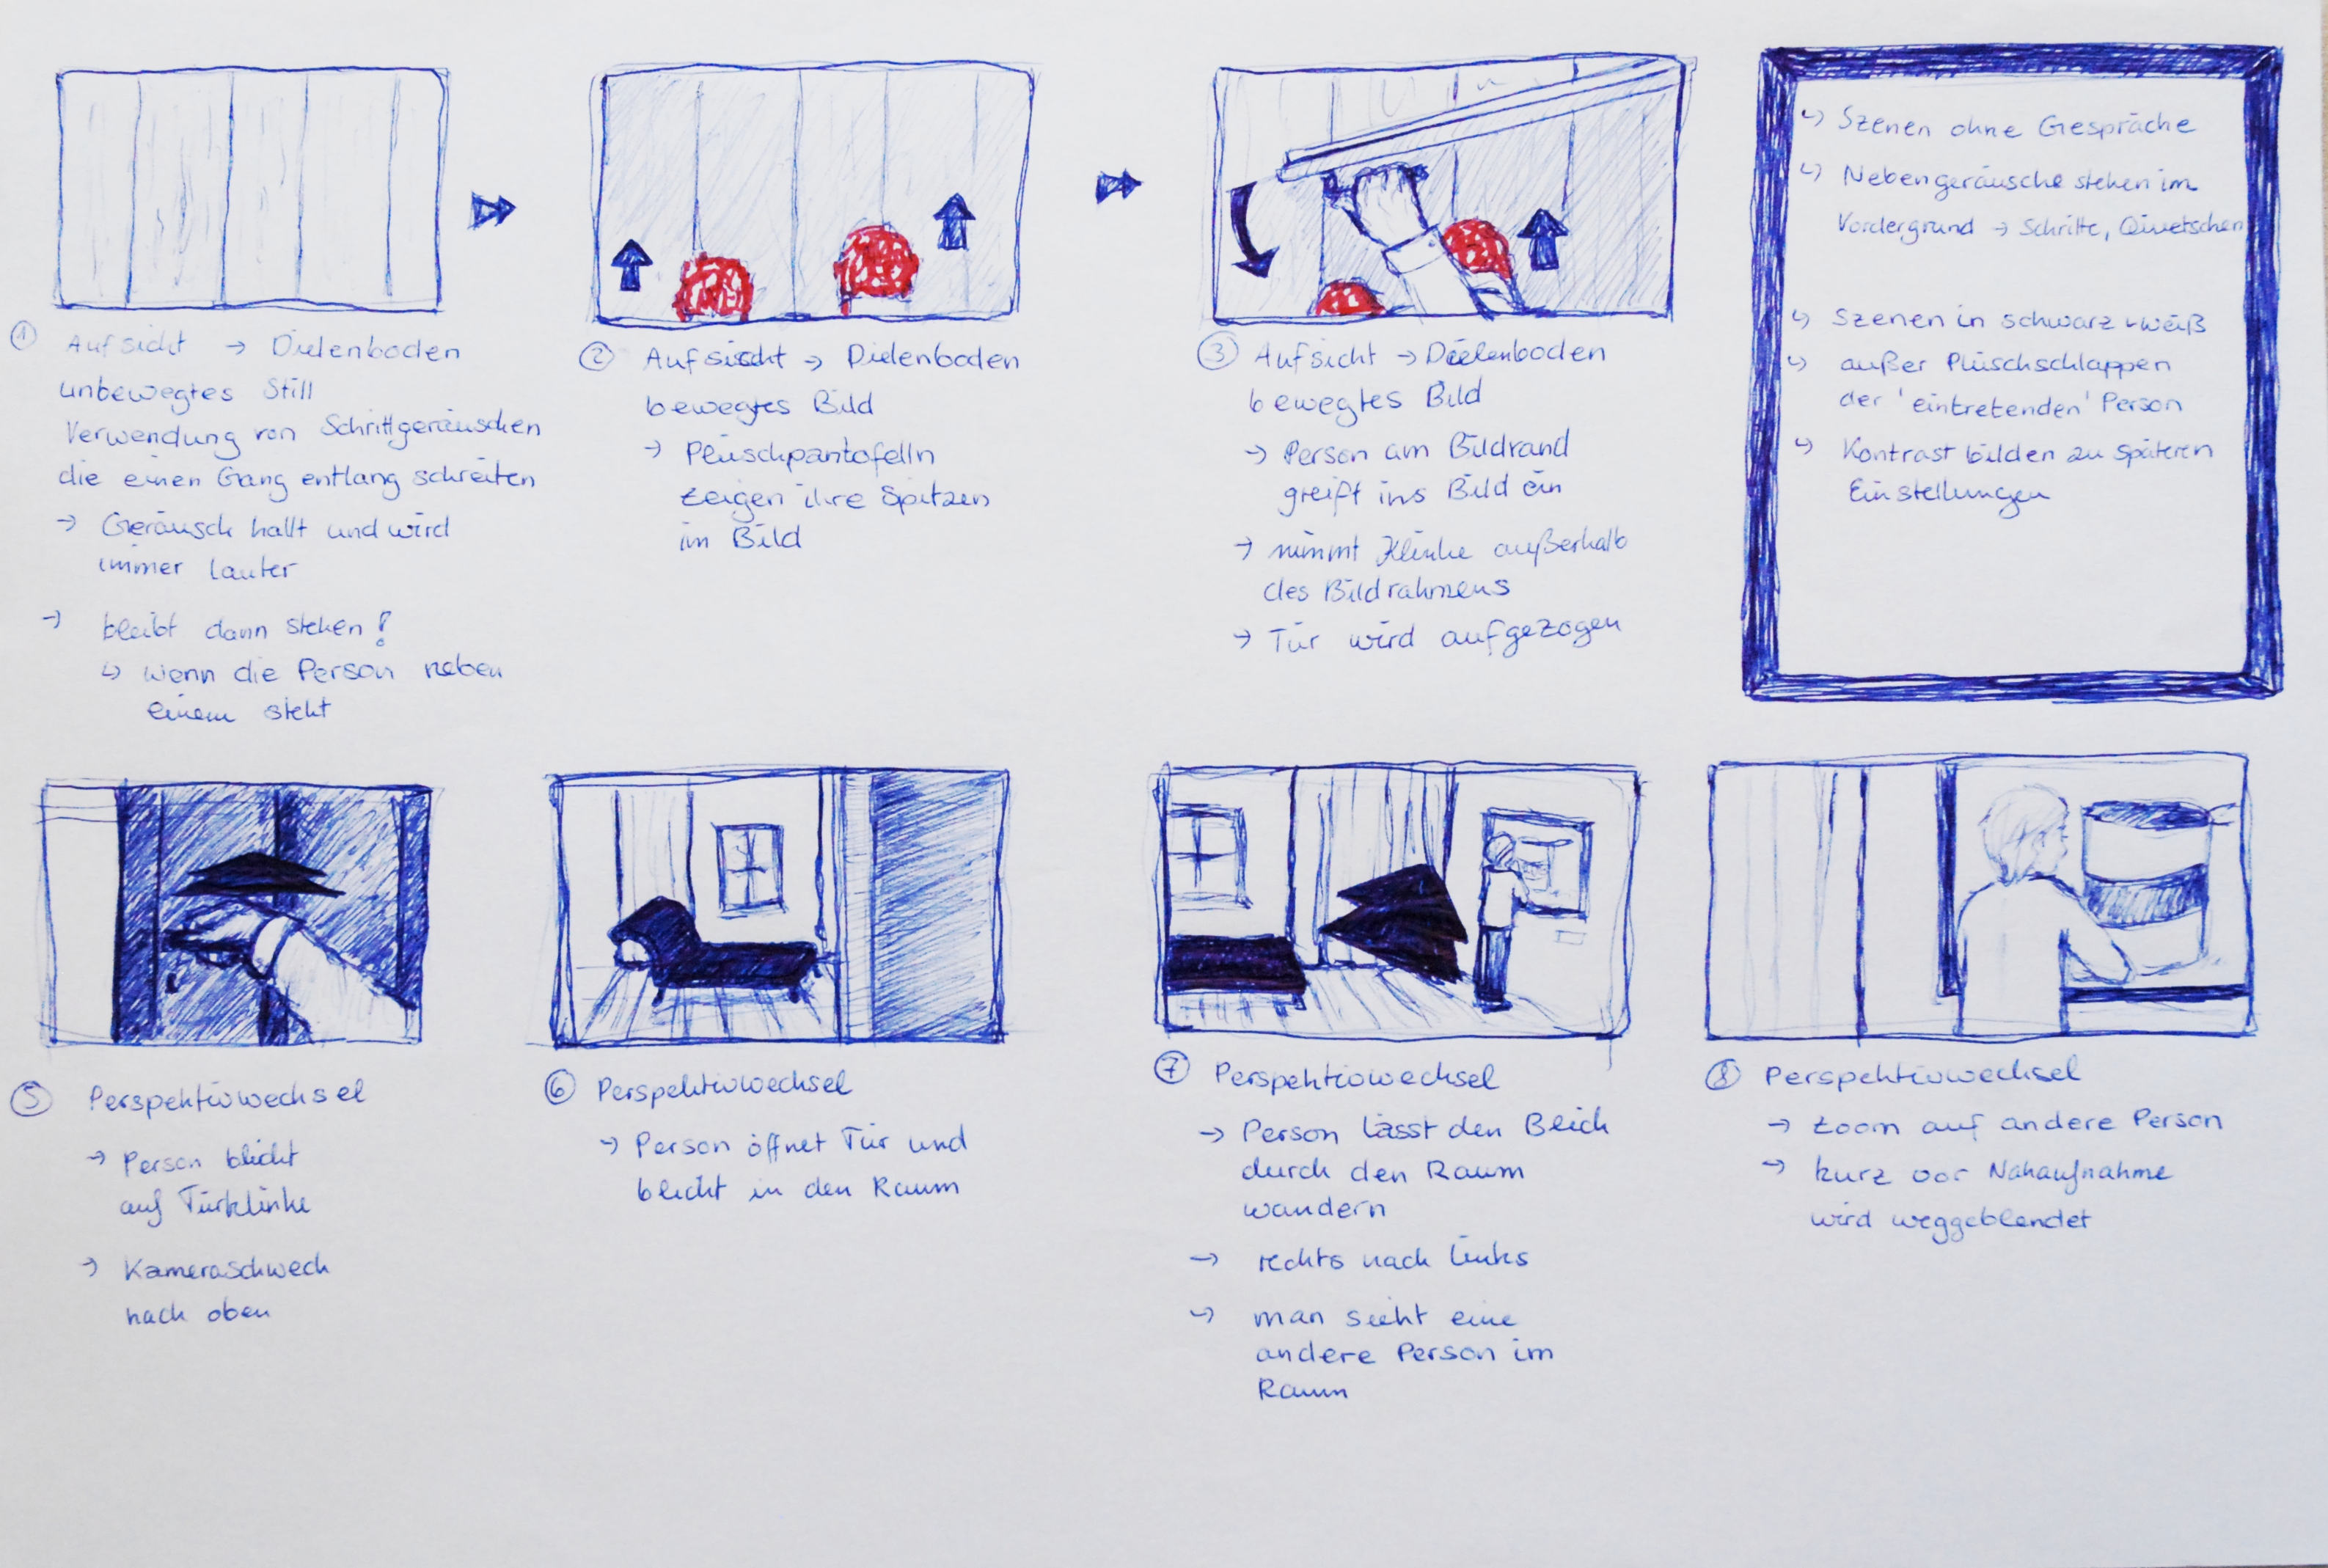 ① Aufsicht → Dielenboden
unbewegtes Still
Verwendung von Schrittgeräuschen
die einen Gang entlang schreiten
→ Geräusch hallt und wird
immer lauter
→ bleibt dann stehen!
↳ wenn die Person neben
einem steht
② Aufsicht → Dielenboden
bewegtes Bild
→ Plüschpantofelln
zeigen ihre Spitzen
im Bild
③ Aufsicht → Dielenboden
bewegtes Bild
→ Person am Bildrand
greift ins Bild ein
→ nimmt Klinke außerhalb
des Bildrahmens
→ Tür wird aufgezogen
↳ Szenen ohne Gespräche
↳ Nebengeräusche stehen im
Vordergrund → Schritte, Quietschen
↳ Szenen in schwarz-weiß
↳ außer Plüschschlappen
der 'eintretenden' Person
↳ Kontrast bilden zu späteren
Einstellungen
⑤ Perspektivwechsel
→ Person blickt
auf Türklinke
→ Kameraschwech
nach oben
⑥ Perspektivwechsel
→ Person öffnet Tür und
blickt in den Raum
⑦ Perspektivwechsel
→ Person lässt den Blick
durch den Raum
wandern
→ rechts nach links
↳ man sieht eine
andere Person im
Raum
⑧ Perspektivwechsel
→ zoom auf andere Person
→ kurz vor Nahaufnahme
wird weggeblendet